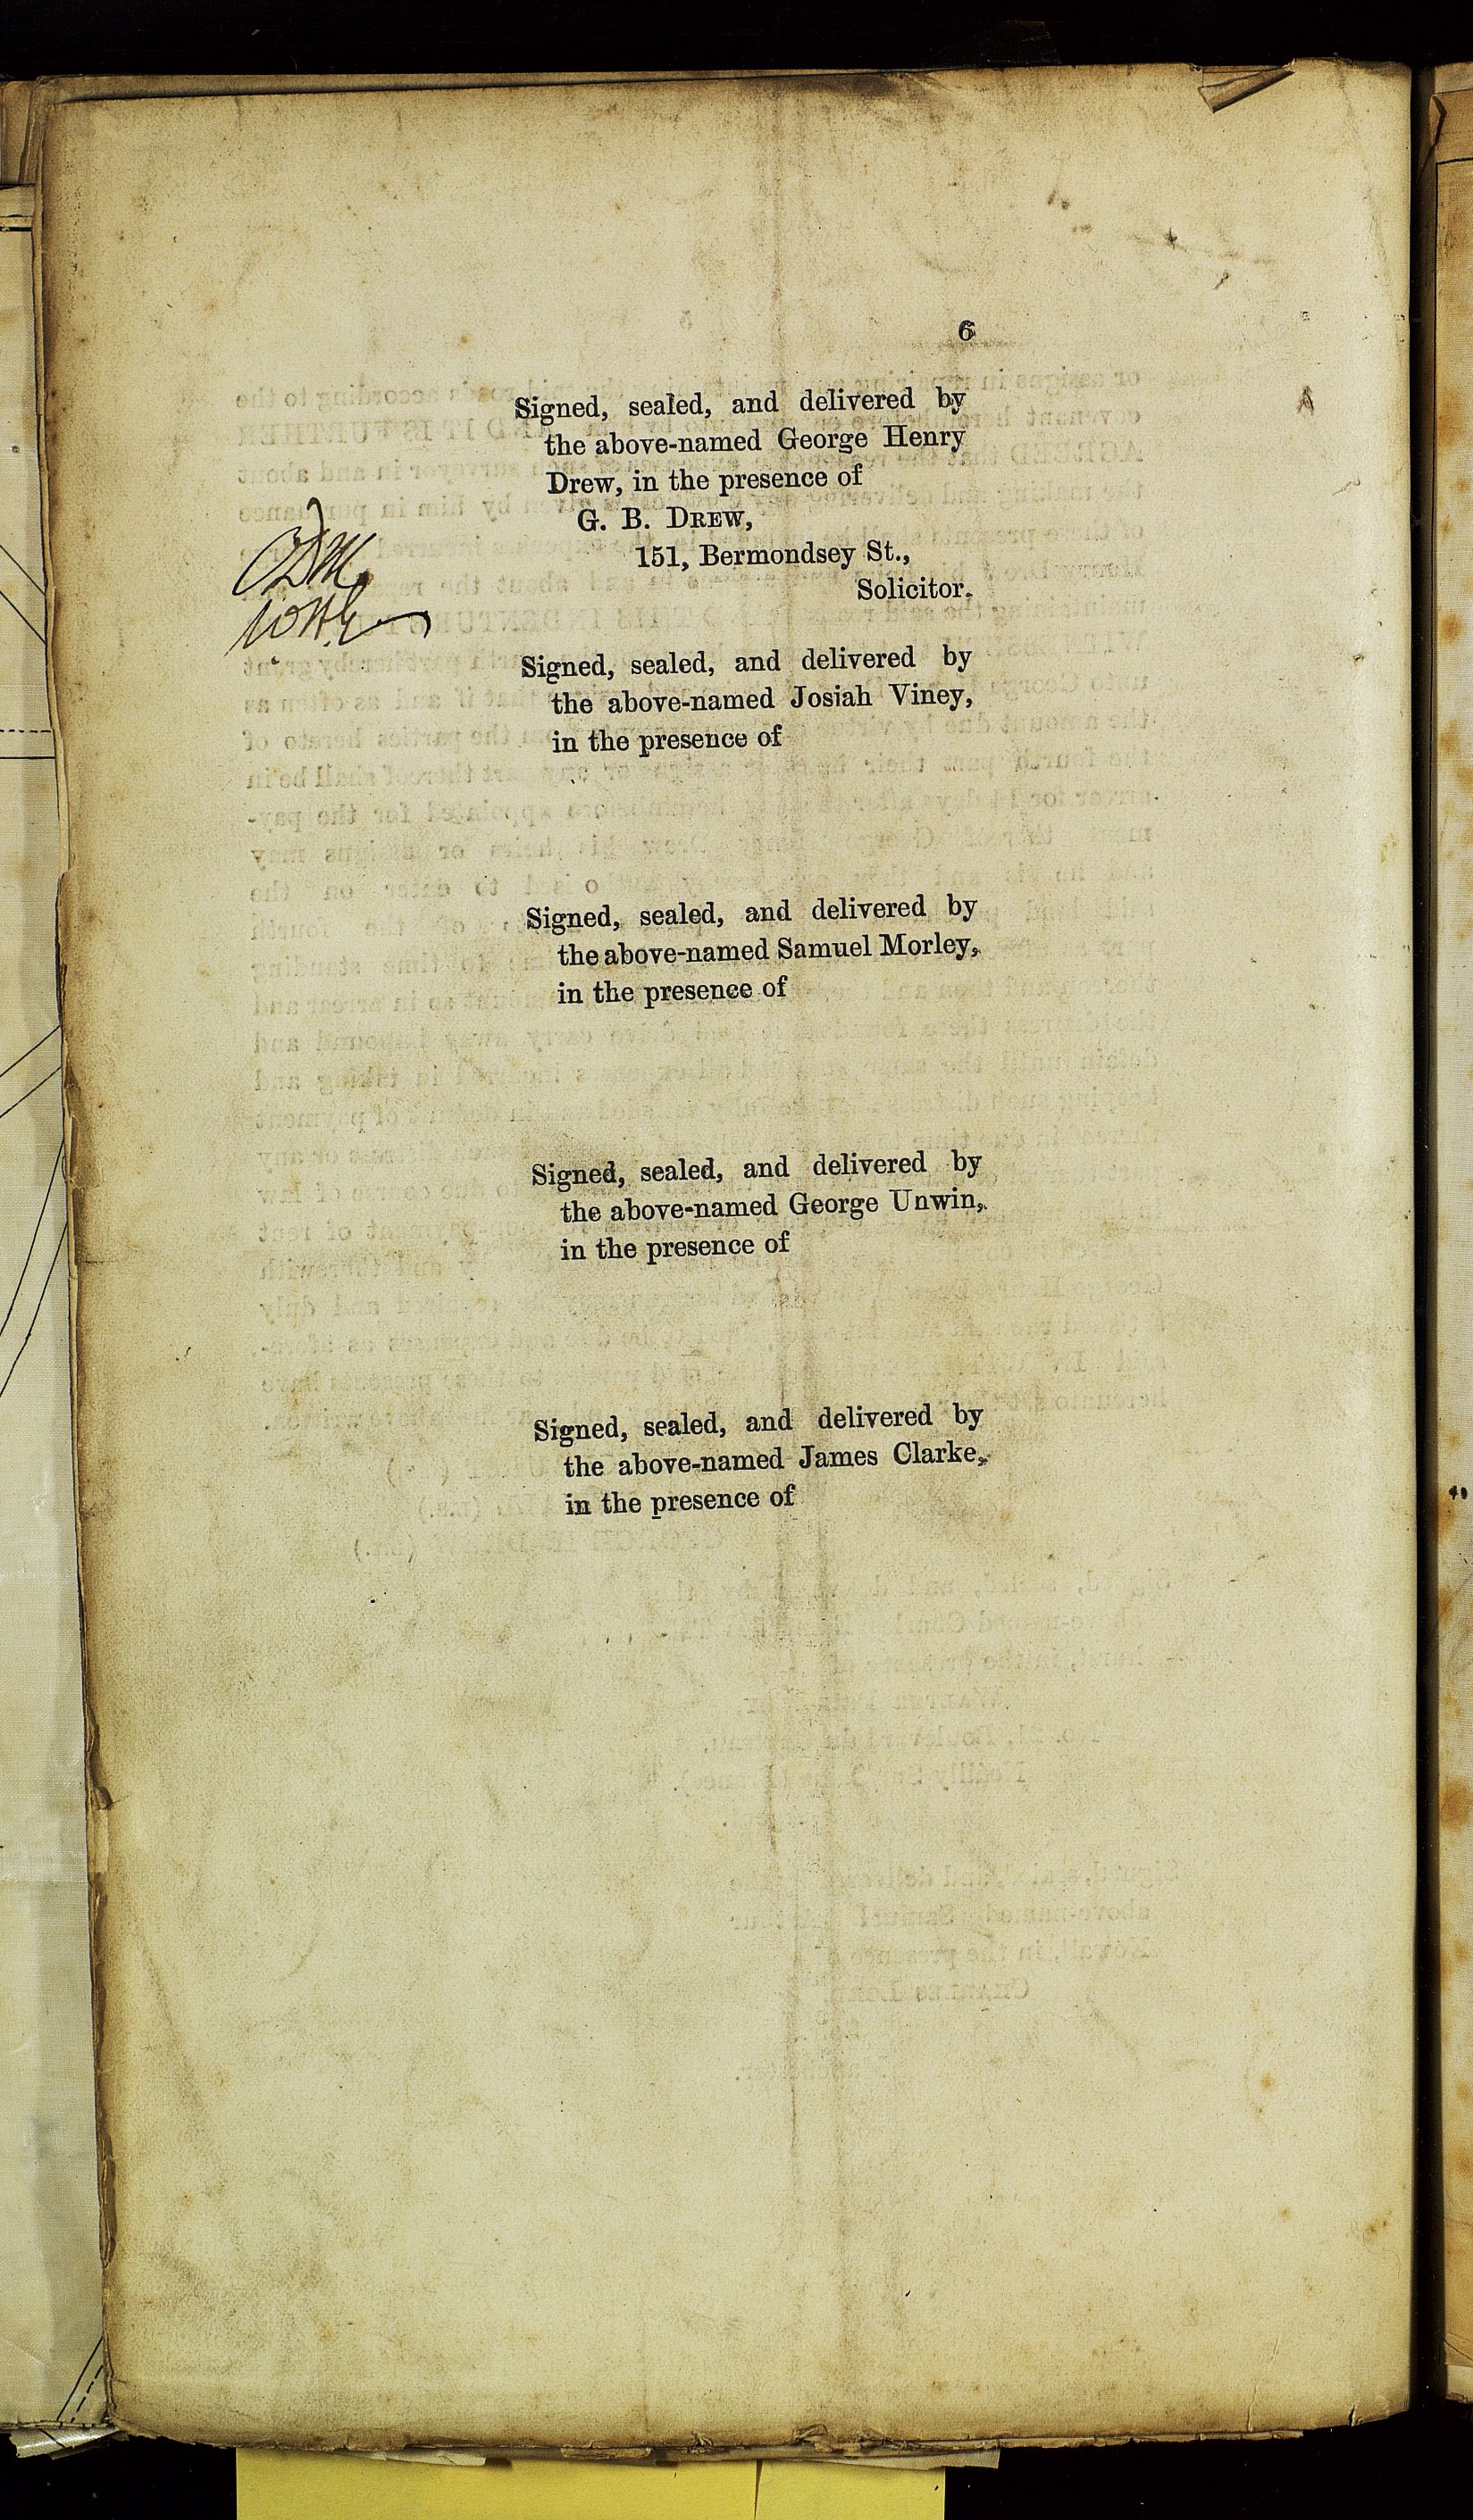 6
Signed, sealed, and delivered by
the above-named George Henry
Drew, in the presence of
G. B. DREW,
151, Bermondsey St.,
Solicitor.
Signed, sealed, and delivered by
the above-named Josiah Viney,
in the presence of
Signed, sealed, and delivered by
the above-named Samuel Morley,
in the presence of
Signed, sealed, and delivered by
the above-named George Unwin,
in the presence of
Signed, sealed, and delivered by
the above-named James Clarke,
in the presence of